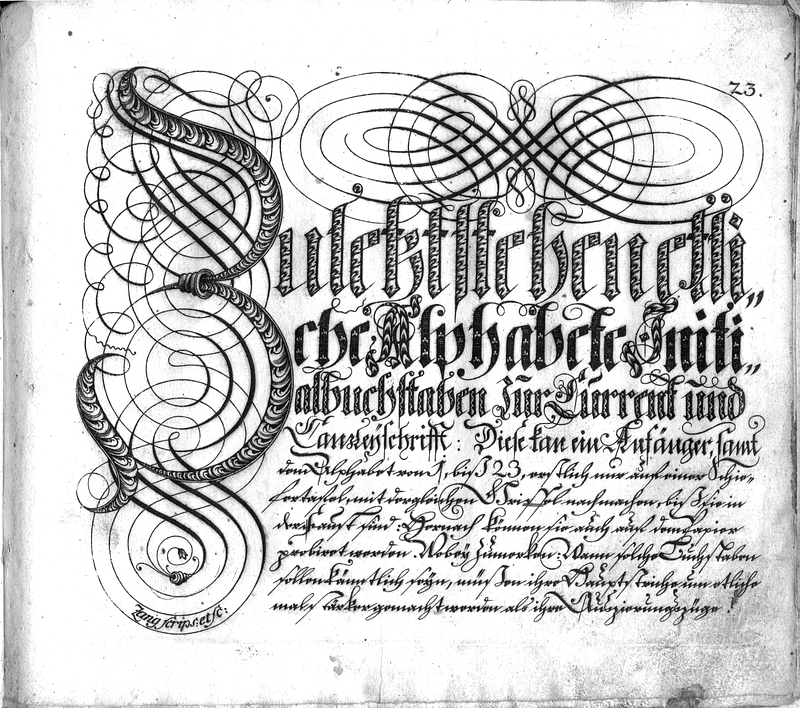 23.
Zuletzt stehen etli„
che Alphabete Initi„
albuchstaben zur Current und
Canzleyschrifft: Diese kan ein Anfänger, samt
dem Alphabet bis 123, erstlich nur auf einer Schie=
fertafel, mit dergleichen Griffel nachmachen, bis sie in
der Faust sind: Hernach können sie auch auf dem Papier
probiret werden. Wobey zumerken: Wann solche Buchstaben
sollen känntlich seyn, müssen ihre Hauptstriche um etliche
mal stärker gemacht werden als ihre Auszierungszüge.
Zang scrips: et sc: